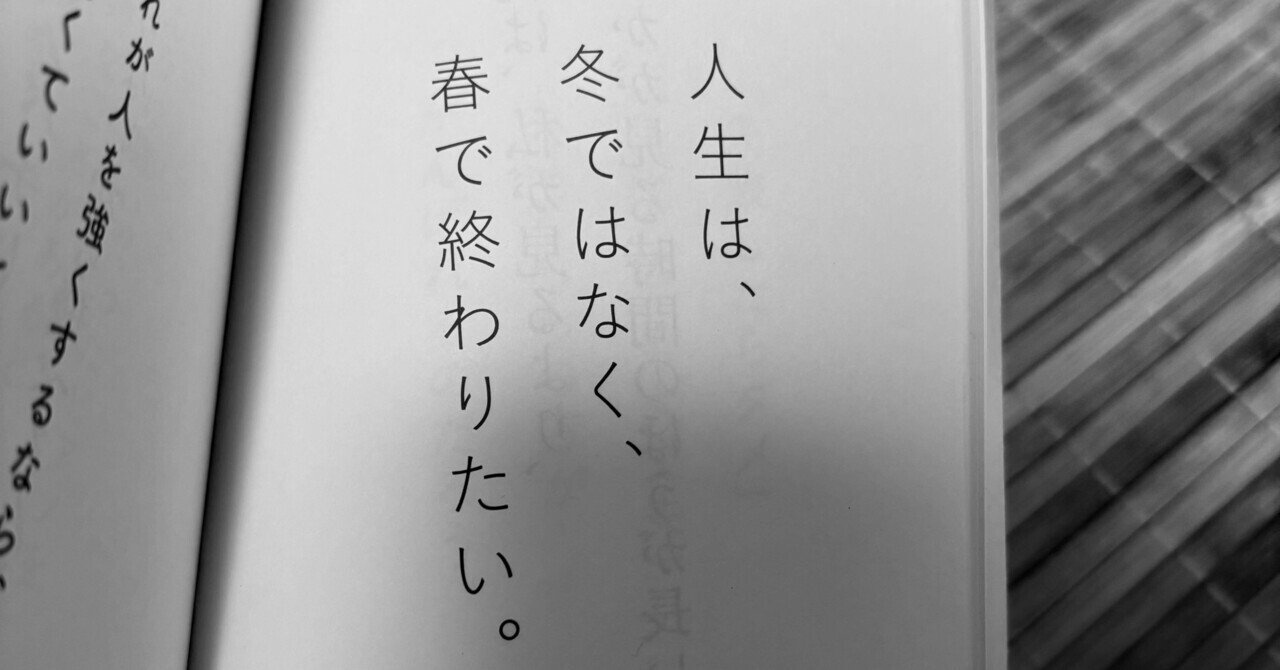 人生は、
冬ではなく、
春で終わりたい。
れが人を強くするなら、
くていい